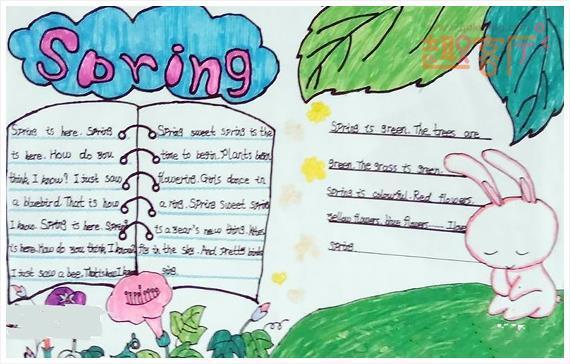 Spring
Spring is here. Spring
is here. How do you
think I know? I just saw
a bluebird. That is how
I know. Spring is here. Spring
is here. How do you think I know?
I just saw a bee.
Spring sweet spring is the
time to begin. Plants
flowering. Girls dance in
a ring. Spring sweet spring
is a year's new thing.
fly in the sky. And pretty birds
sing.
Spring is green. The trees are
green. The grass is green.
Spring is colourful. Red flowers.
Yellow flowers, blue flowers...... I love
spring.